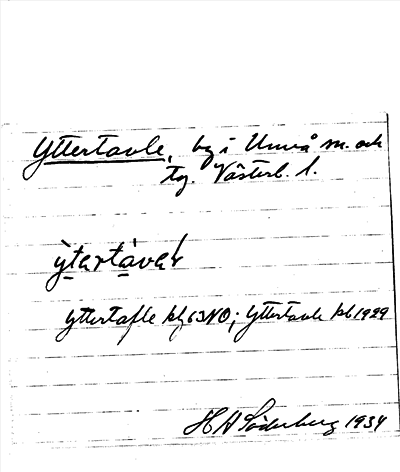 Yttertavle, by i Umeå sn. och
tg. Västerb. l.
ỳtərtávəl
yttertafle kb 63 NO; Yttertavle kb 1929
H A Söderberg 1934